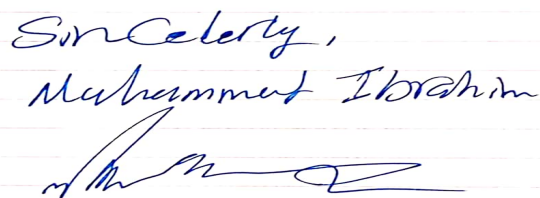 Sincelerly,
Muhammad Ibrahim